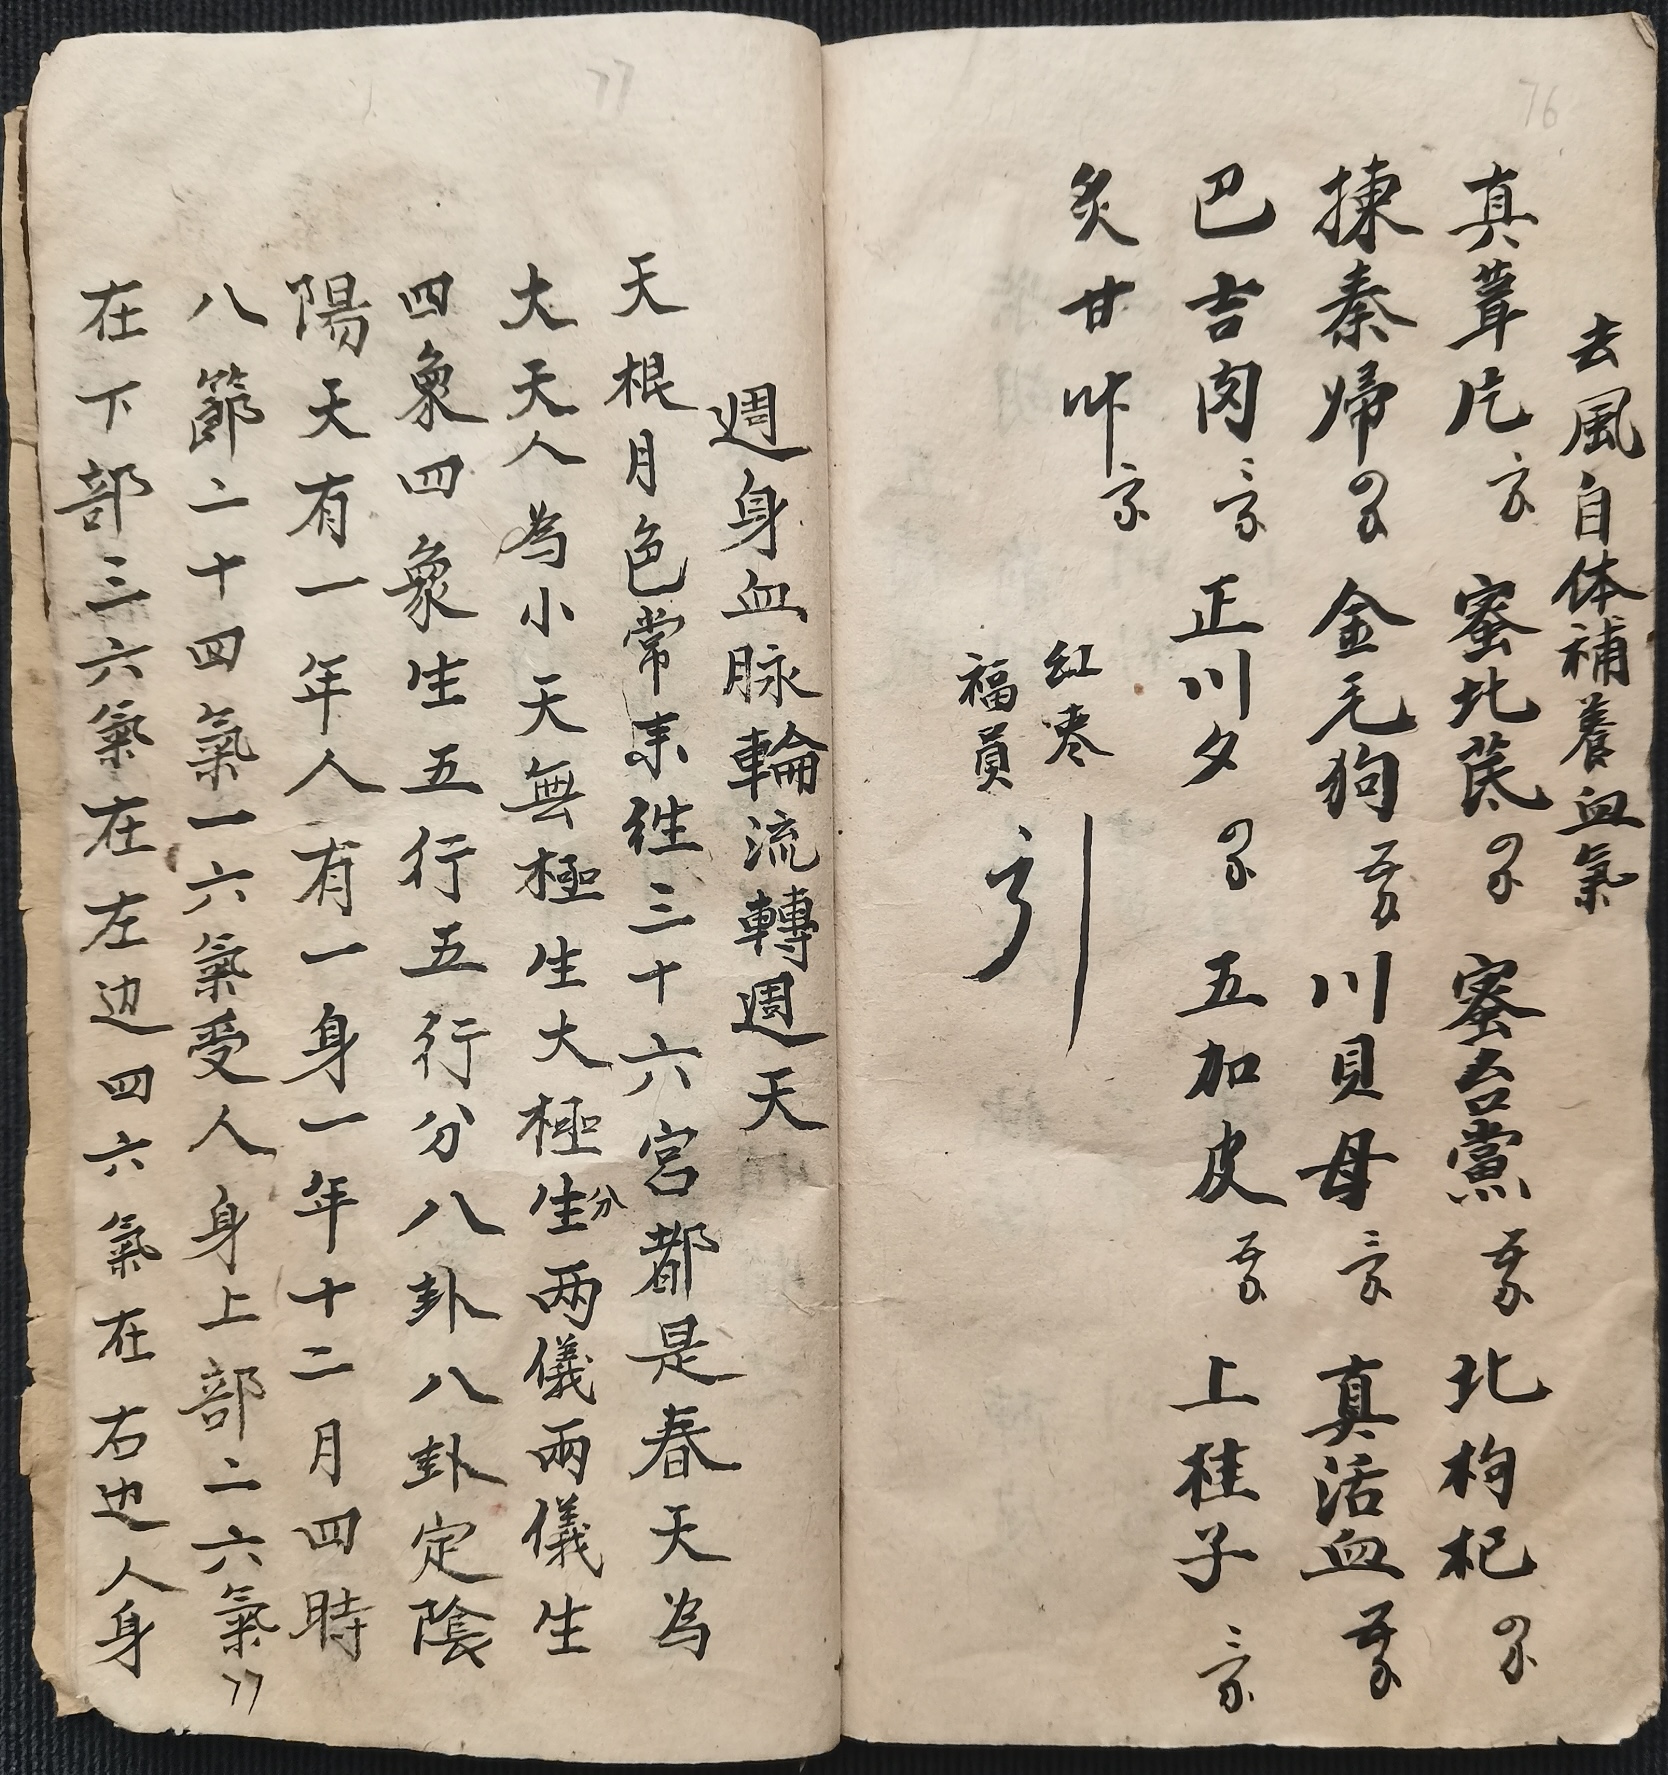 76
去風自体補養血氣
真茸片 蜜北芪 蜜台黨 北枸杞
揀秦歸 金毛狗 川貝母 真活血
巴吉肉 正川夕 五加皮 上桂子
炙甘
紅棗
福員
引
77
週身血脉輪流轉週天
天根月色常来往三十六宮都是春天為
大天人為小天無極生大極生分兩儀兩儀生
四象四象生五行五行分八卦八卦定陰
陽天有一年人有一身一年十二月四時
八節二十四氣一六氣受人身上部二六氣
在下部三六氣在左边四六氣在右边人身
77